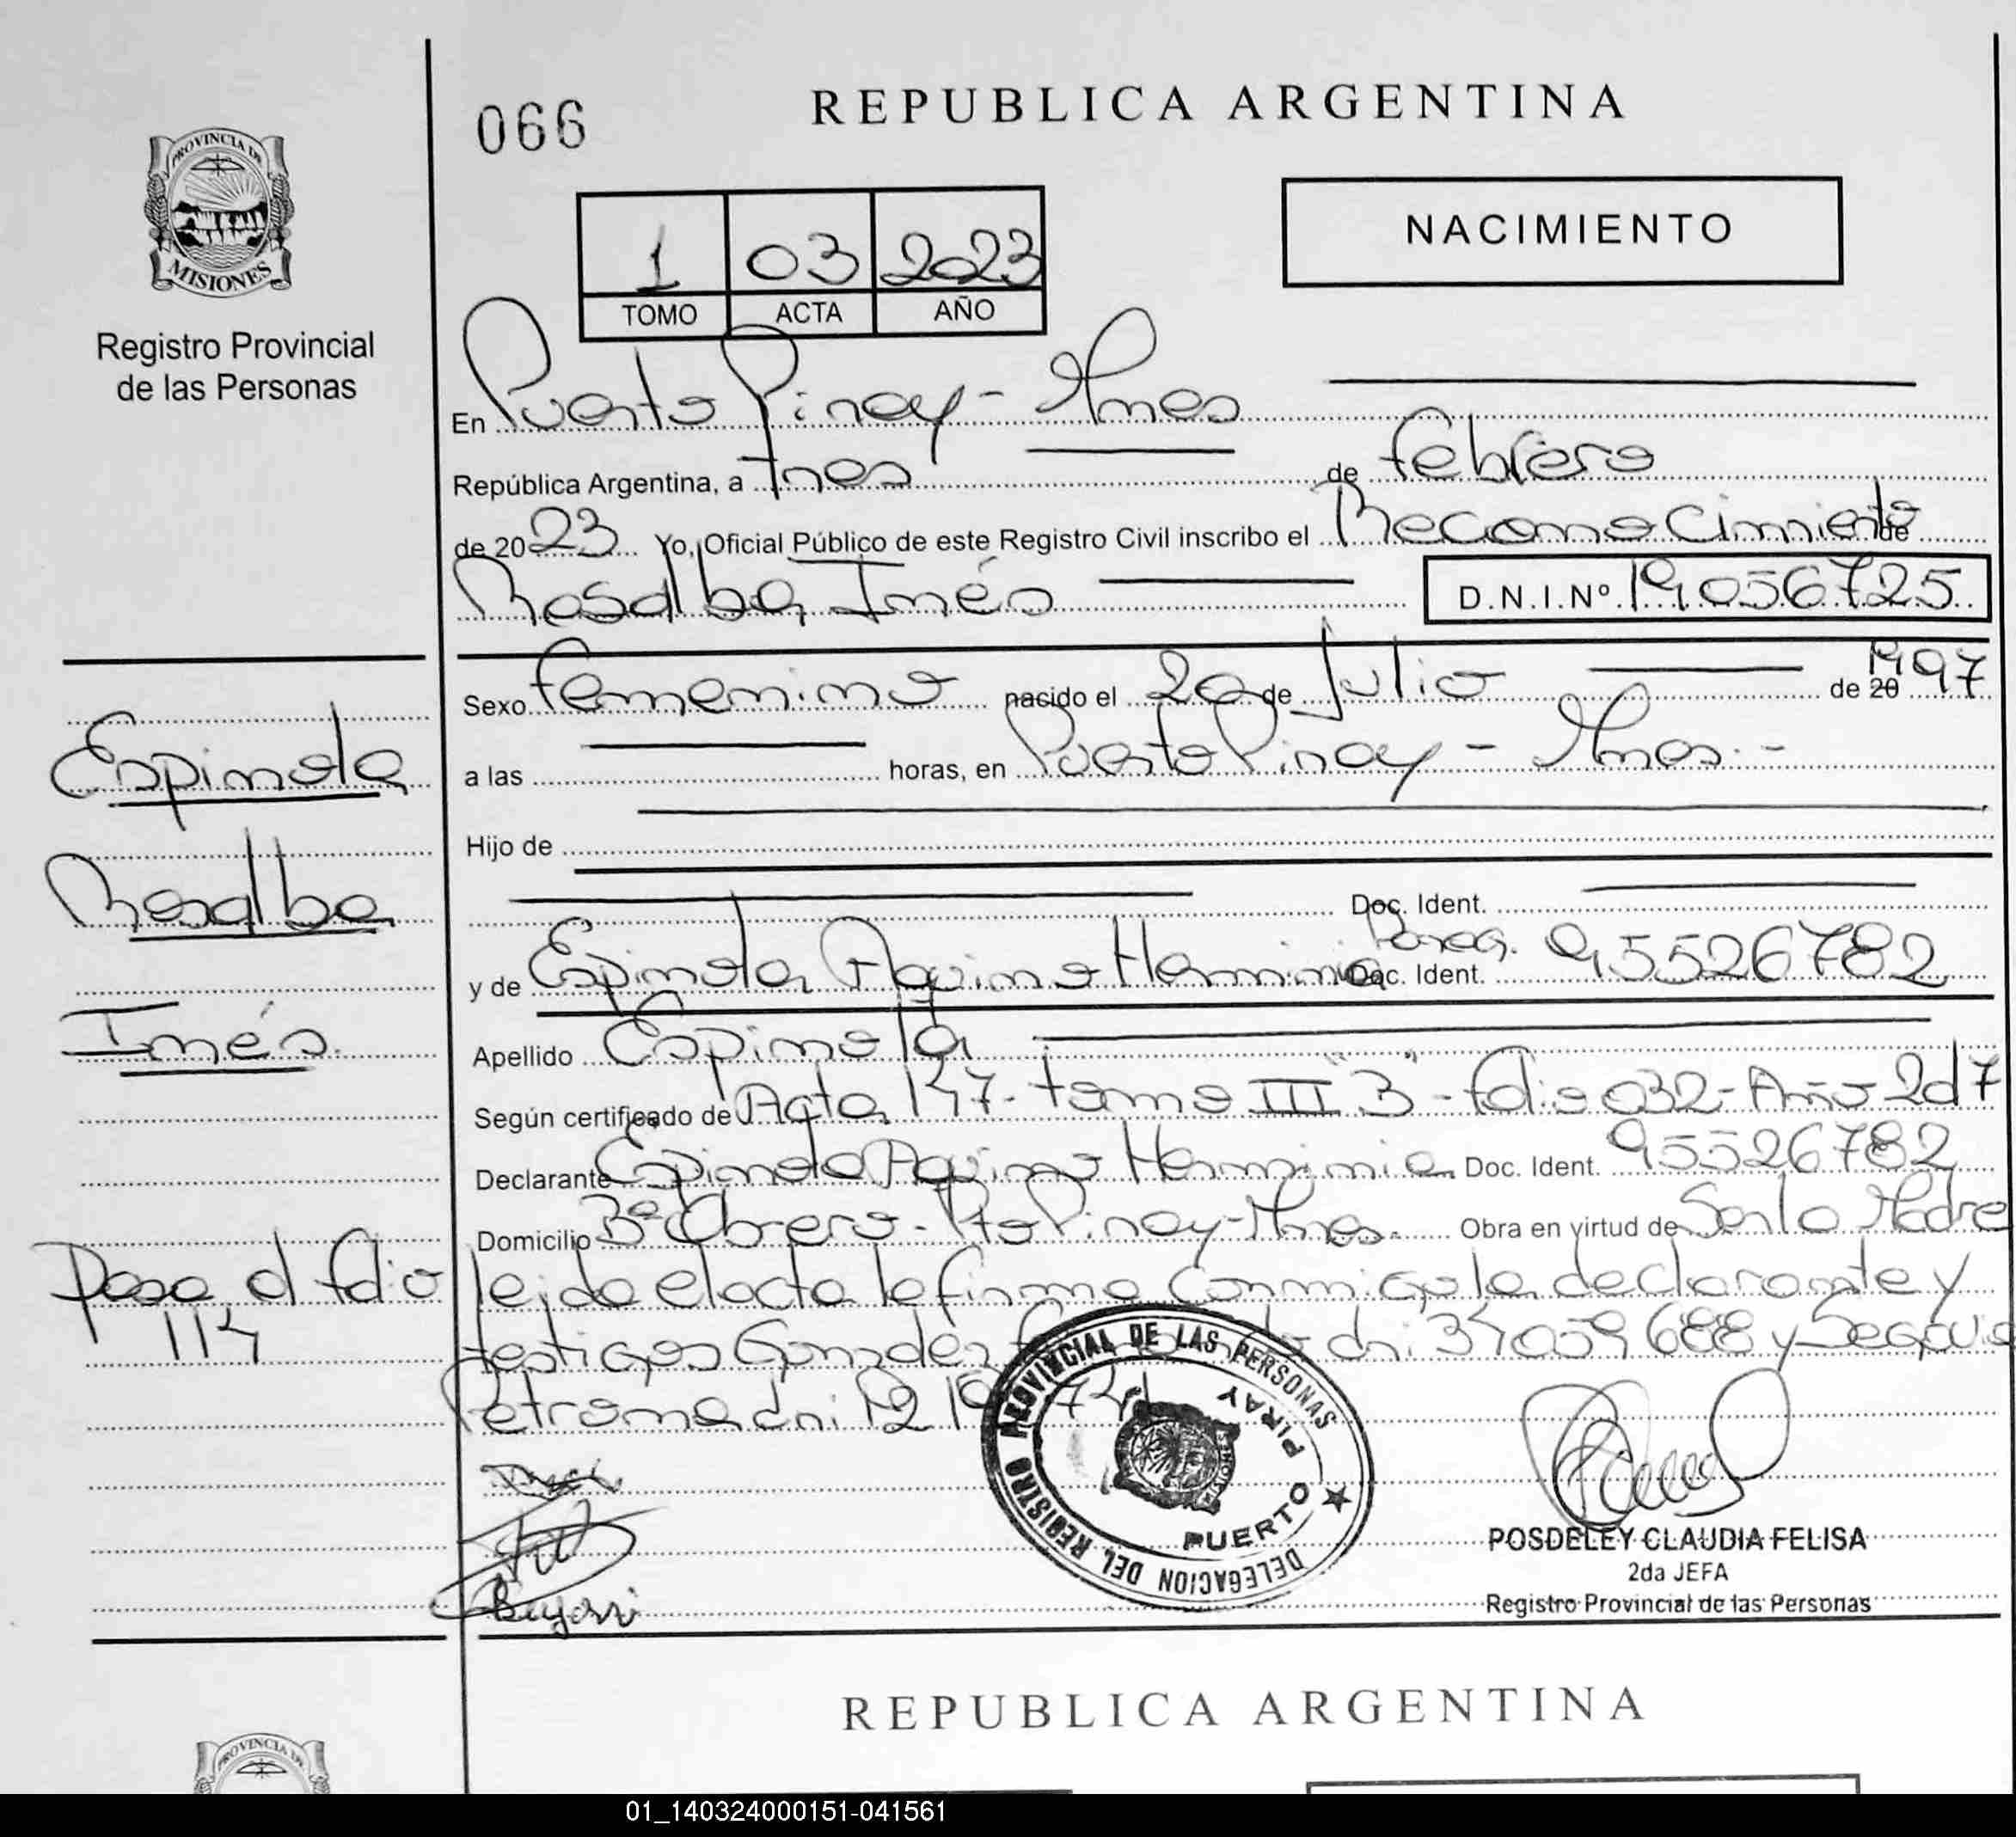 PROVINCIA DE
MISIONES
Registro Provincial
de las Personas
066
REPUBLICA ARGENTINA
NACIMIENTO
1 03 2023
TOMO ACTA AÑO
En Puerto Piray - Mnes
República Argentina, a tres de febrero
de 2023 Yo, Oficial Público de este Registro Civil inscribo el Reconocimiento de
Rosalba Inés D.N.I.Nº 19056725
Sexo femenino nacido el 20 de Julio de 20 1997
a las horas, en Puerto Piray - Mnes.-
Hijo de
Doc. Ident.
y de Espinola Aquino Herminia Doc. Ident. Parag. 95526782
Apellido Espinola
Según certificado de Acta 147 - tomo III "B" - folio 032 - Año 2017
Declarante Espinola Aquino Herminia Doc. Ident. 95526782
Domicilio Bº Obrero - Pto Piray - Mnes. Obra en virtud de Ser la Madre
leida el acta la firma conmigo la declarante y
testigos dni 34059688 y Segovia
Petrona dni 12
Espinola
Rosalba
Inés
Pasa al folio
114
DELEGACION DEL REGISTRO PROVINCIAL DE LAS PERSONAS
PUERTO PIRAY
MISIONES
POSDELEY CLAUDIA FELISA
2da JEFA
Registro Provincial de las Personas
REPUBLICA ARGENTINA
PROVINCIA DE
01_140324000151-041561